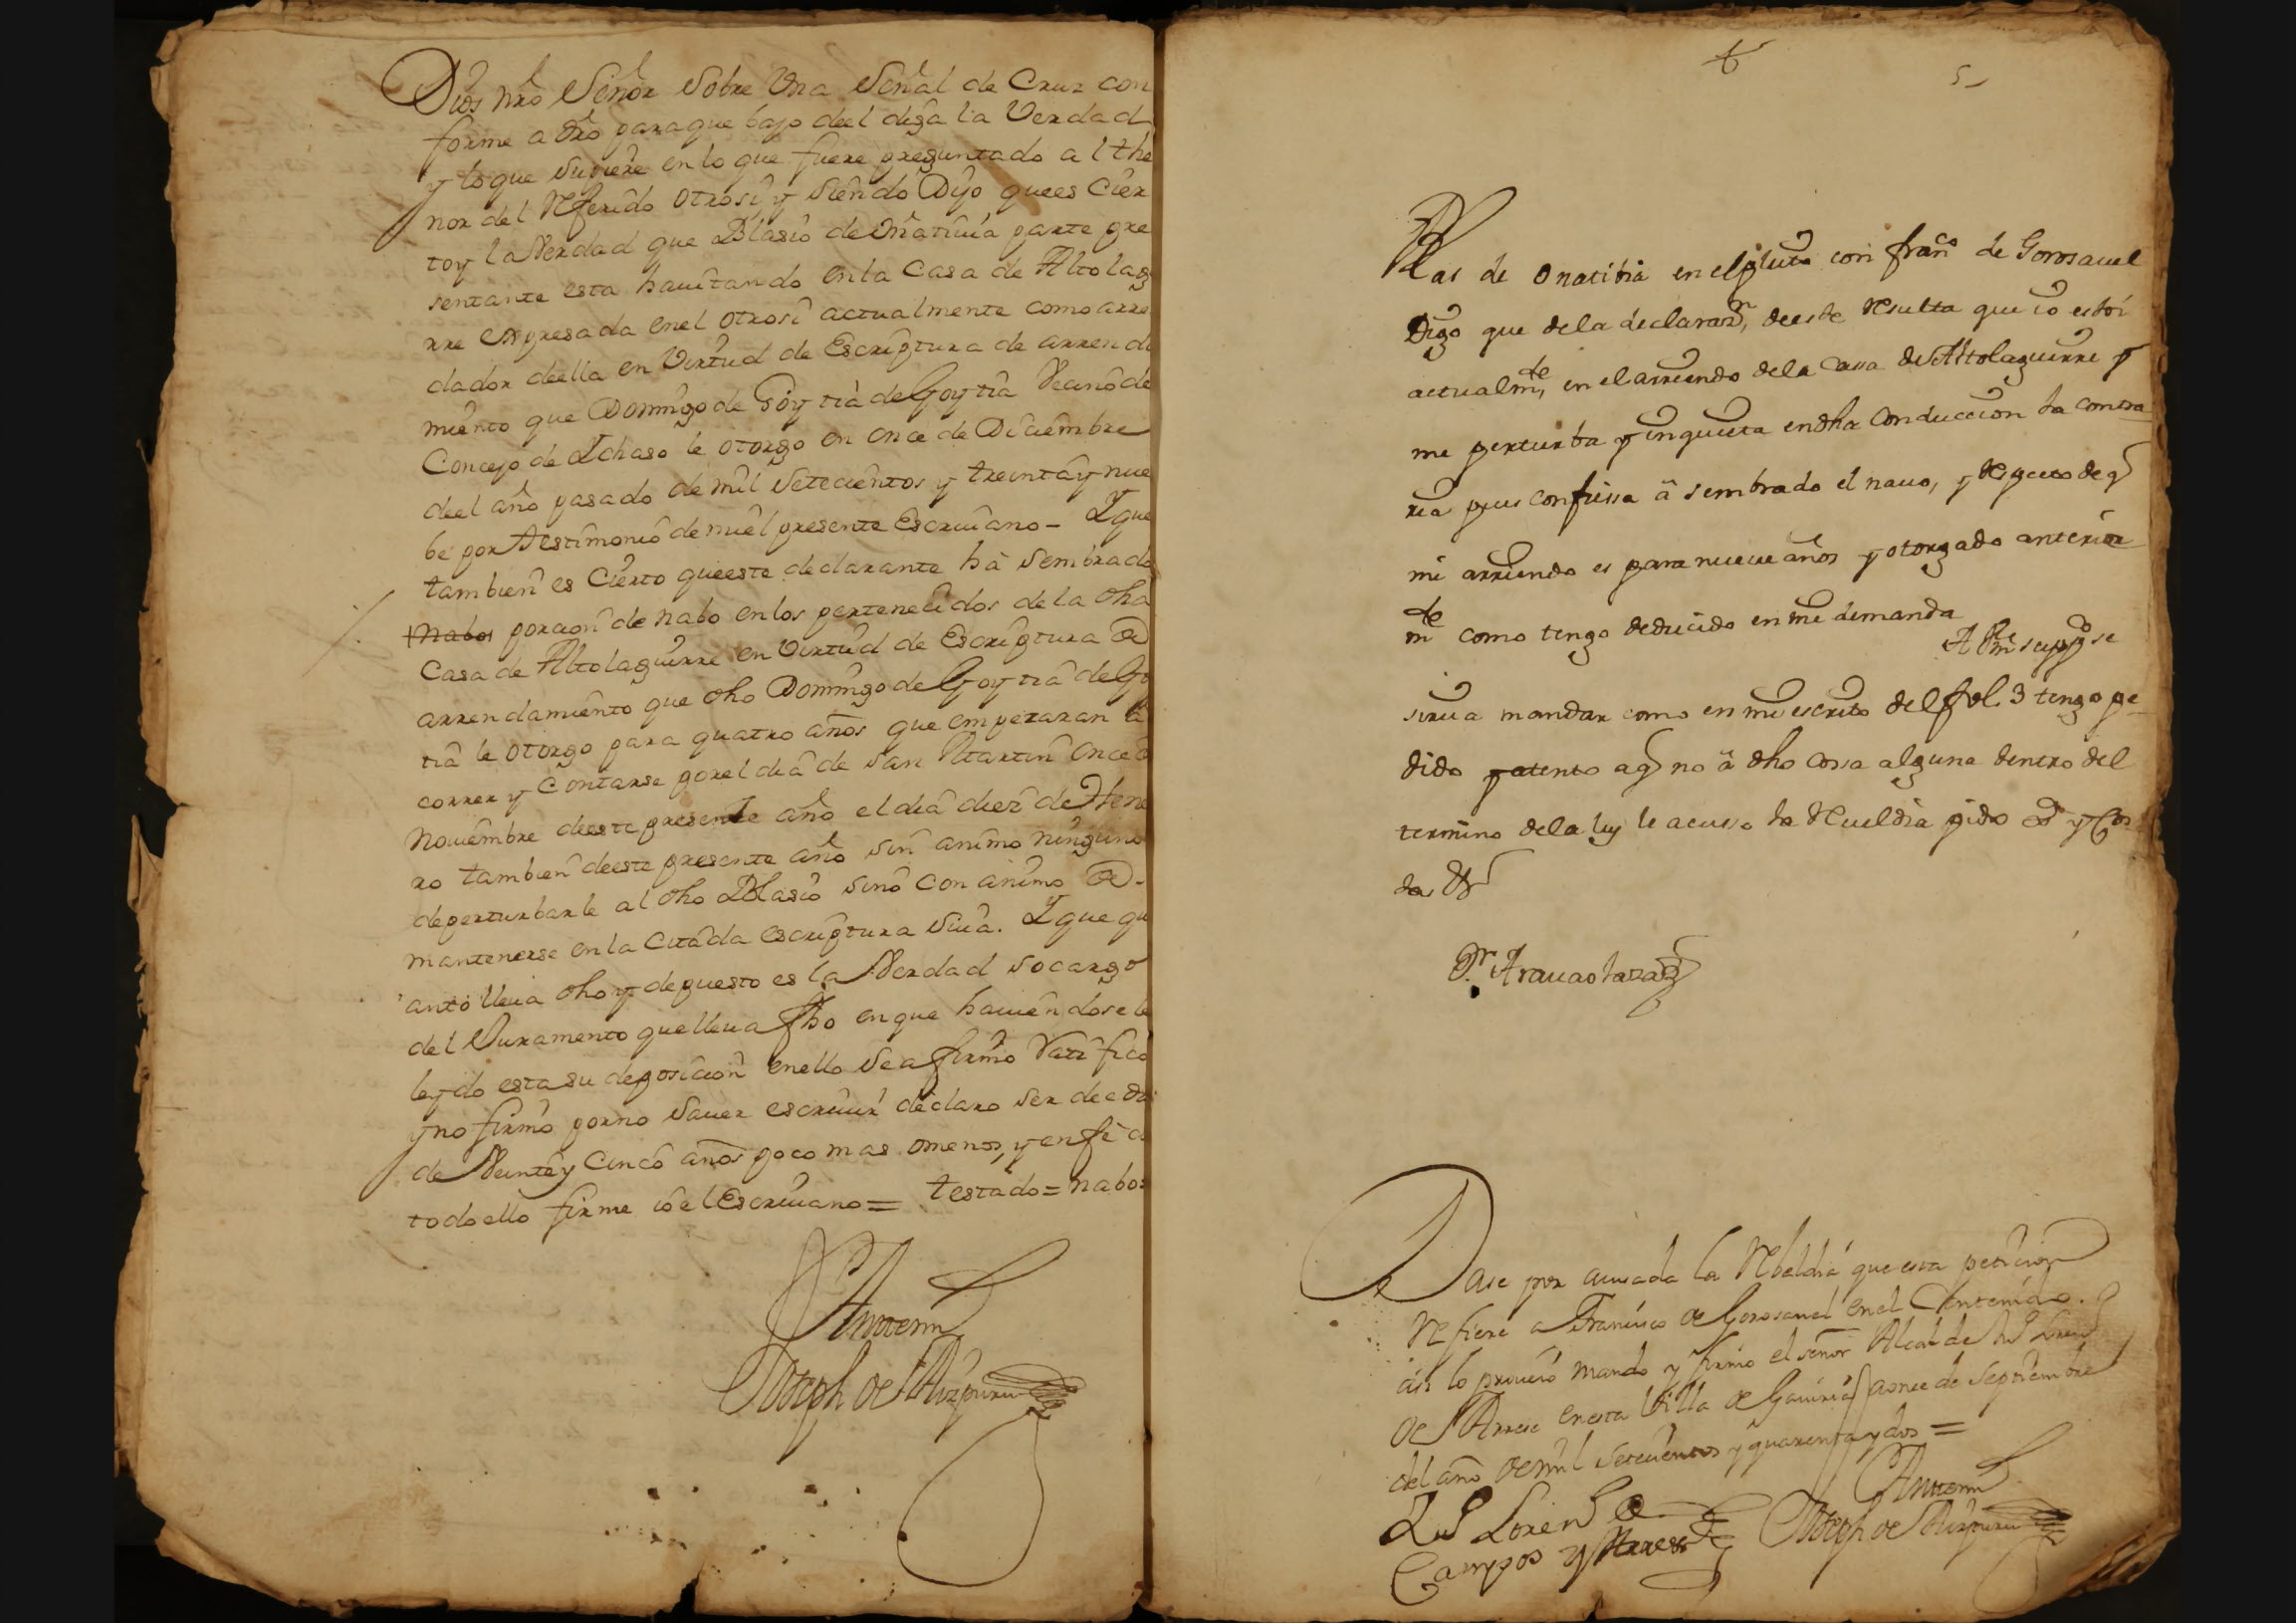 Dios nrô Señor sobre Vna Señal de Cruz con
forme a dro paraque bajo deel diga la Verdad
y lo que supiere en lo que fuere preguntado al the
nor del Referido otrosi, y siendo Dijo quees Cier
to y la Verdad que Blasio de Onativia parte pre
sentante esta havitando en la Casa de Altolag
rre expresada en el otrosi actualmente como arre
dador deella en Virtud de Escriptura de arrenda
miento que Domingo de Goytia de Goytia Vecino de
Concejo de Ichaso le otorgo en once de Diciembre
deel año pasado de mil Setecientos y treinta y nue
be por testimonio de mi el presente Escriuano - Y que
tambien es Cierto queeste declarante hà sembrado
nabos porcion de nabo en los pertenecidos de la dha
Casa de Altolaguirre en Virtud de Escriptura de
arrendamiento que dho Domingo de Goytia de Go
tia le otorgo para quatro años que empezaran a
correr y Contarse por el dia de San Martin once de
Noviembre deeste presente año el dia diez de Hene
ro tambien deeste presente año sin animo ninguno
deperturbarle al dho Blasio sino con animo de
mantenerse en la Citada escriptura suia. Y que qu
anto lleua dho y depuesto es la Verdad so cargo
del Juramento quelleua fho en que haviendosele
leydo esta su deposicion en ello se afirmo Ratifico
y no firmo por no saver escriuir declaro ser de eda
de Veinte y Cinco años poco mas omenos, y en fe de
todo ello firme io el Escriuano = testado = nabos
Antemi
Joseph de Aizpuru
5
Blas de Onatibia en el pleito con franco de Gorosauel
Digo que dela declaraon, deeste resulta que io estoi
actualmte, en el arriendo dela Cassa de Altolaguirre y
me perturba y inquieta en dha Conduccion la contra
ria pues confiessa â sembrado el nauo, y respecto de q
mi arriendo es para nueue años y otorgado anterior
mte como tengo deducido en mi demanda
A Vm suppco se
sirua mandar como en mi escrito del fol. 3 tengo pe
dido y atento aq no â dho cossa alguna dentro del
termino dela ley le acusso la Reueldia pido Jª y Cos
tas &
Dr Arauaolaza
Dase por acusada la Rebeldia que esta peticion
Refiere a Francisco de Gorosauel en el Contenido.
asi lo proueio mando y firmo el señor Alcalde Dn Lorenzo
de Arrese en esta Villa de Gauiria a once de Septiembre
del año de mil setecientos y quarenta y dos =
Dn Lorenzo de
Campos y Arrese
Antemi
Joseph de Aizpuru